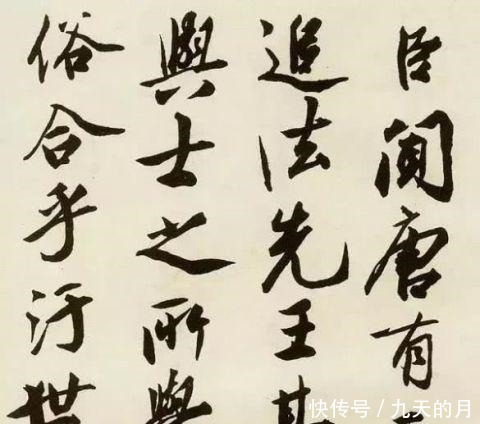 臣聞唐有
追法先王其
與士之所與
俗合乎汙世
快传号/九天的月